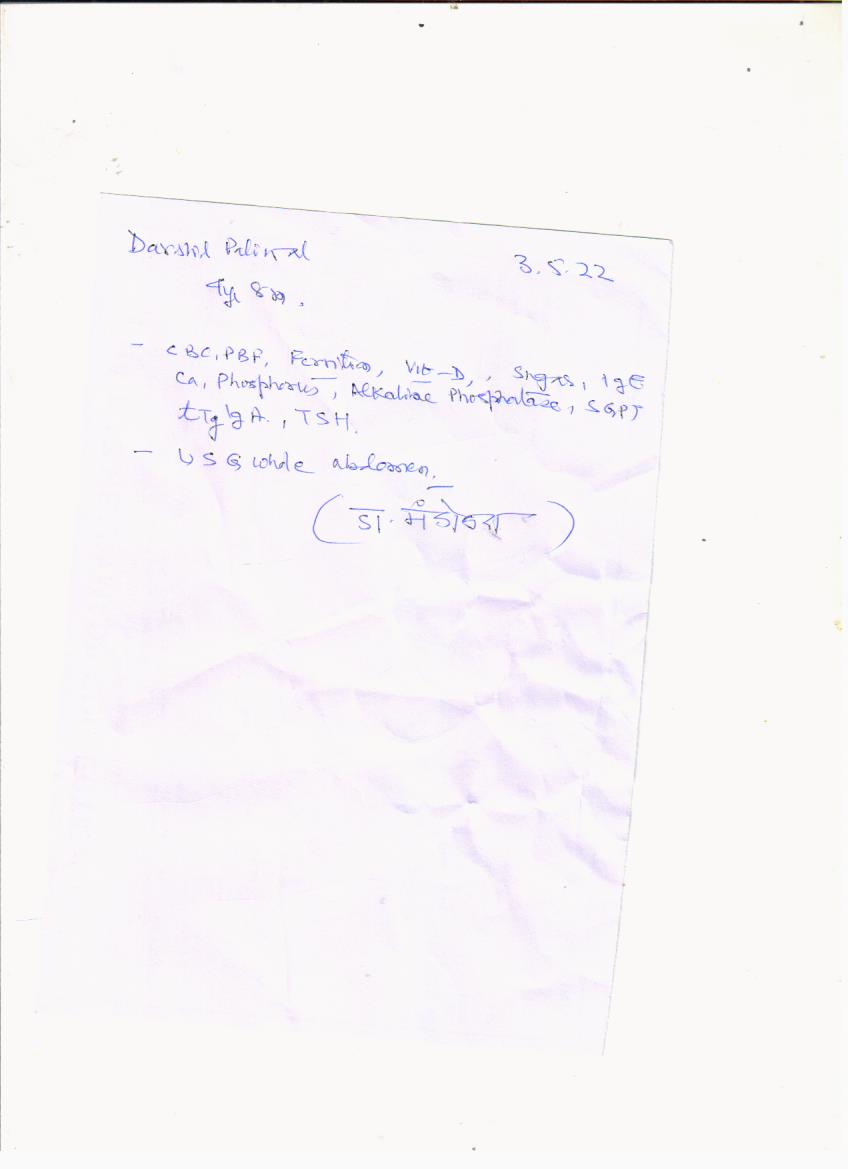 Darshil Paliwal 3.5.22
4yr 8m.
- CBC, PBF, Ferritin, Vit-D, , IgE
Ca, Phosphorus, Alkaline Phosphatase, SGPT
tTg IgA., TSH.
- USG whole abdomen.
(डा. मंडोवरा)